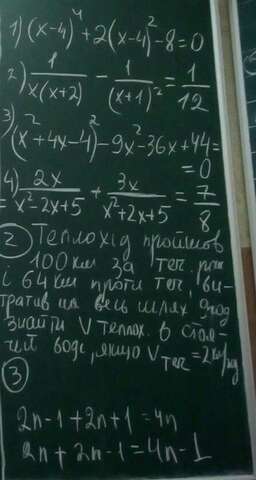 1) (x-4)⁴+2(x-4)²-8=0
2) 1/(x(x+2)) - 1/(x+1)² = 1/12
3) (x²+4x-4)²-9x²-36x+44=
=0
4) 2x/(x²-2x+5) + 3x/(x²+2x+5) = 7/8
② Теплохід пройшов
100 км за теч. річк
і 64 км проти теч, ви-
тратив на весь шлях 9год
знайти V теплох. в стоя-
чій воде, якщо V теч =2км/год
③
2n-1+2n+1=4n
2n+2n-1=4n-1